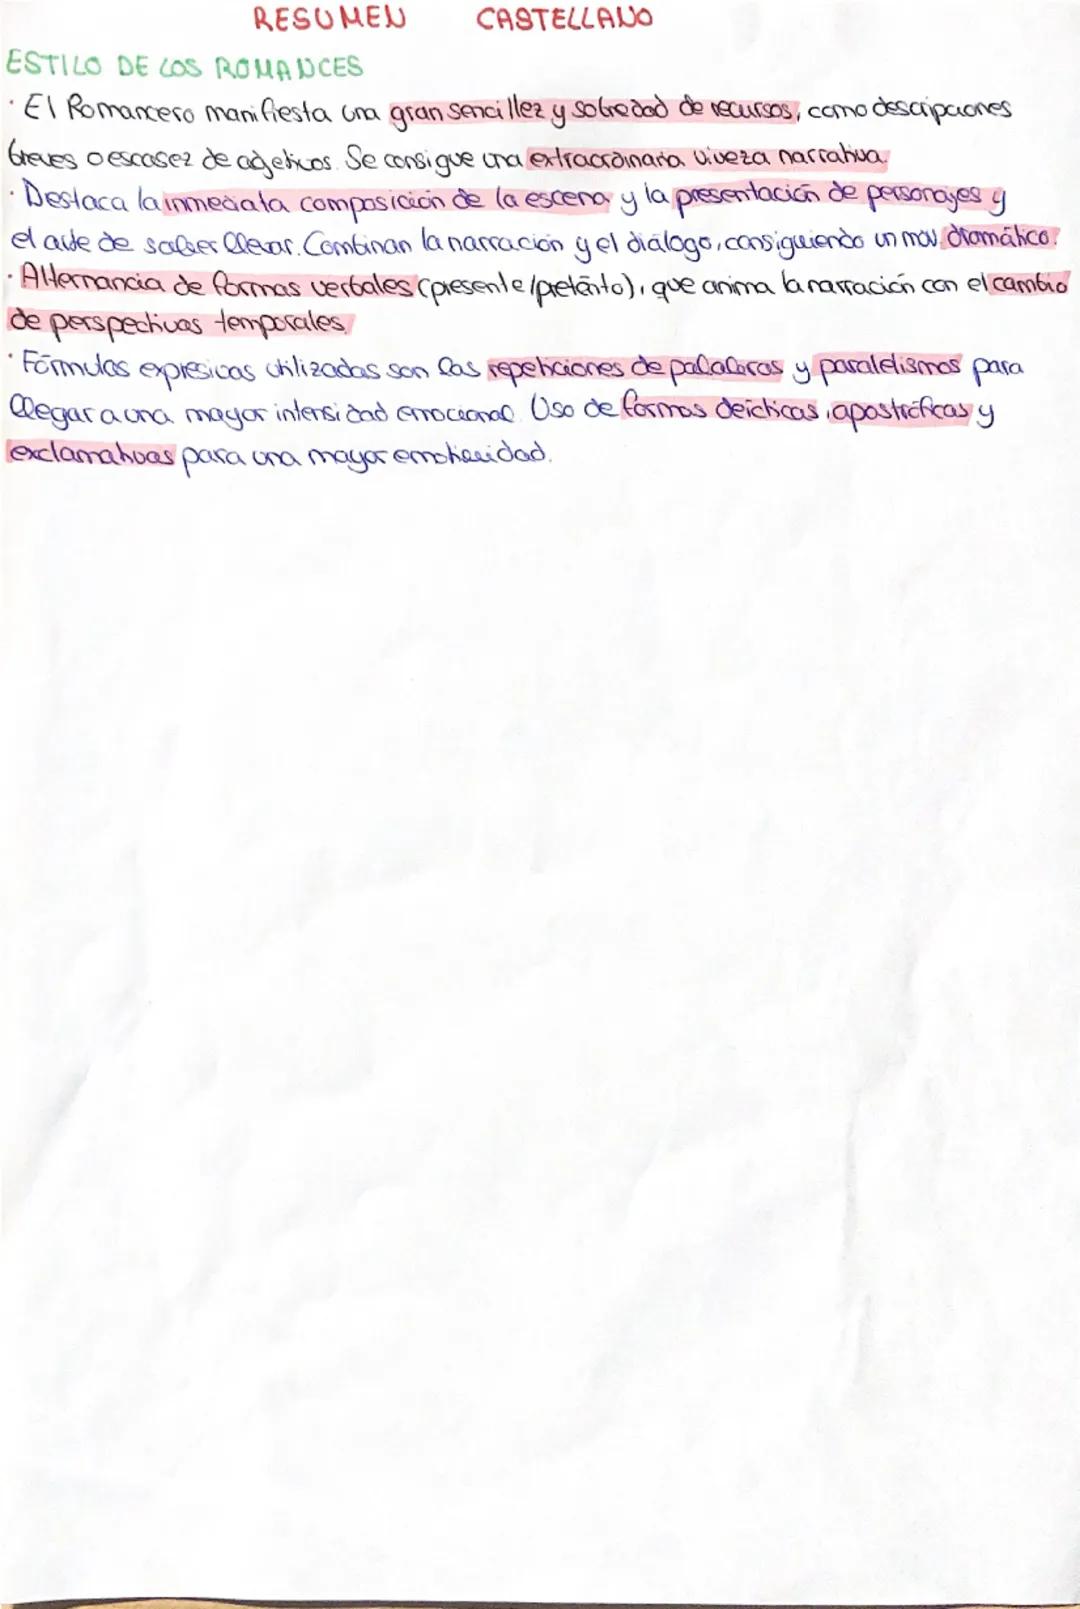 RESUMEN CASTELLANO
ESTILO DE LOS ROMANCES
· El Romancero manifiesta una gran sencillez y sobredad de recursos, como descripciones
breves o escasez de adjetivos. Se consigue una extraordinaria viveza narrativa.
· Destaca la inmediata composición de la escena y la presentación de personajes y
el arte de saber llevar. Combinan la narración y el diálogo, consiguiendo un mov. dramático.
· Alternancia de formas verbales (presente/pretérito), que anima la narración con el cambio
de perspectivas temporales.
· Fórmulas expresivas utilizadas son las repeticiones de palabras y paralelismos para
llegar a una mayor intensidad emocional. Uso de formas deícticas, apostróficas y
exclamativas para una mayor emotividad.